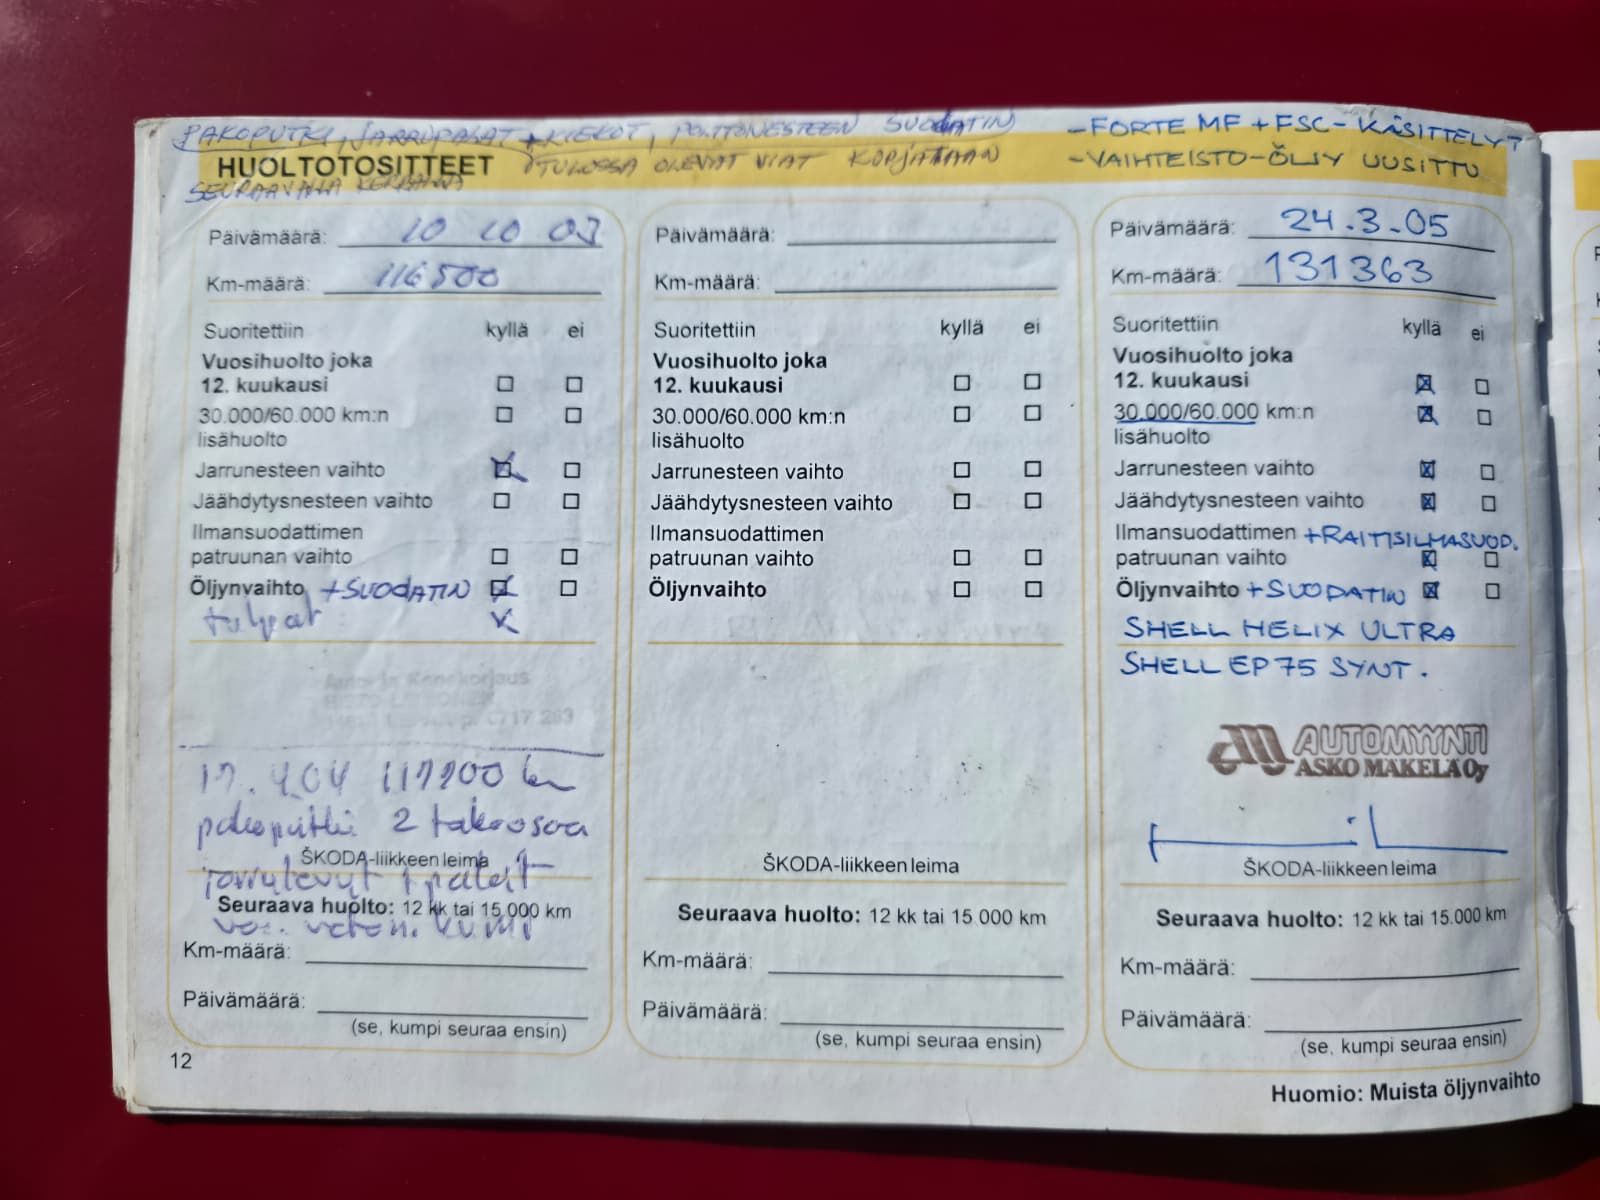 PAKOPUTKI, JARRUPALAT + KIEKOT, POLTTONESTEEN SUODATIN
TULOSSA OLEVAT VIAT KORJATAAN
SEURAAVALLA KERRALLA
- FORTE MF + FSC - KÄSITTELYT
- VAIHTEISTO-ÖLJY UUSITTU
HUOLTOTOSITTEET
Päivämäärä: 10 10 03
Km-määrä: 116500
Suoritettiin kyllä ei
Vuosihuolto joka
12. kuukausi
30.000/60.000 km:n
lisähuolto
Jarrunesteen vaihto
Jäähdytysnesteen vaihto
Ilmansuodattimen
patruunan vaihto
Öljynvaihto + SUODATIN
tulpat
17.4.04 km
pakoputki 2 takaosaa
jarrulevyt palat
ŠKODA-liikkeen leima
Seuraava huolto: 12 kk tai 15.000 km
Km-määrä:
Päivämäärä:
(se, kumpi seuraa ensin)
12
Päivämäärä:
Km-määrä:
Suoritettiin kyllä ei
Vuosihuolto joka
12. kuukausi
30.000/60.000 km:n
lisähuolto
Jarrunesteen vaihto
Jäähdytysnesteen vaihto
Ilmansuodattimen
patruunan vaihto
Öljynvaihto
ŠKODA-liikkeen leima
Seuraava huolto: 12 kk tai 15.000 km
Km-määrä:
Päivämäärä:
(se, kumpi seuraa ensin)
Päivämäärä: 24.3.05
Km-määrä: 131363
Suoritettiin kyllä ei
Vuosihuolto joka
12. kuukausi
30.000/60.000 km:n
lisähuolto
Jarrunesteen vaihto
Jäähdytysnesteen vaihto
Ilmansuodattimen + RAITISILMASUOD.
patruunan vaihto
Öljynvaihto + SUODATIN
SHELL HELIX ULTRA
SHELL EP 75 SYNT.
AUTOMYYNTI
ASKO MÄKELÄ Oy
ŠKODA-liikkeen leima
Seuraava huolto: 12 kk tai 15.000 km
Km-määrä:
Päivämäärä:
(se, kumpi seuraa ensin)
Huomio: Muista öljynvaihto